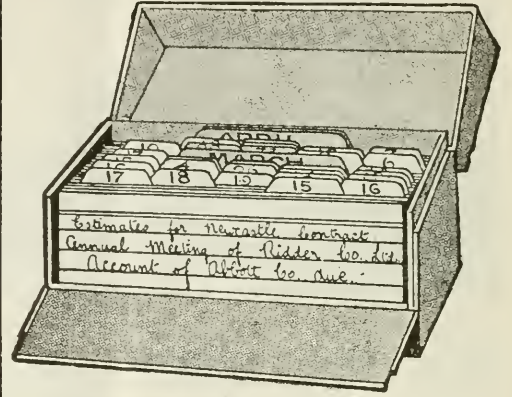 APRIL
MARCH
6
17 18 19 15 16
Estimates for Newcastle Contract,
Annual Meeting of Ridder Co. Ltd.
Account of Abbott Co. due.